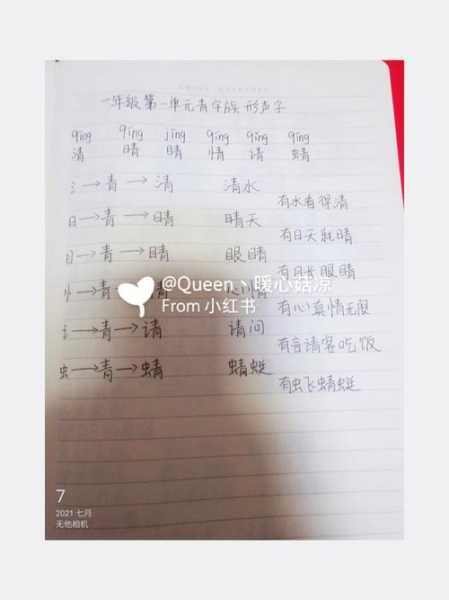 一年级第一单元青字族形声字
qīng qíng jīng qíng qǐng qīng
清 晴 睛 情 请 蜻
氵→青→清 清水
有水看得清
日→青→晴 晴天
有日天气晴
目→青→睛 眼睛
有目长眼睛
忄→青
有心真情无限
讠→青→请 请问
有言请客吃饭
虫→青→蜻 蜻蜓
有虫飞蜻蜓
@Queen丶暖心菇凉
From 小红书
7
2021 七月
无他相机